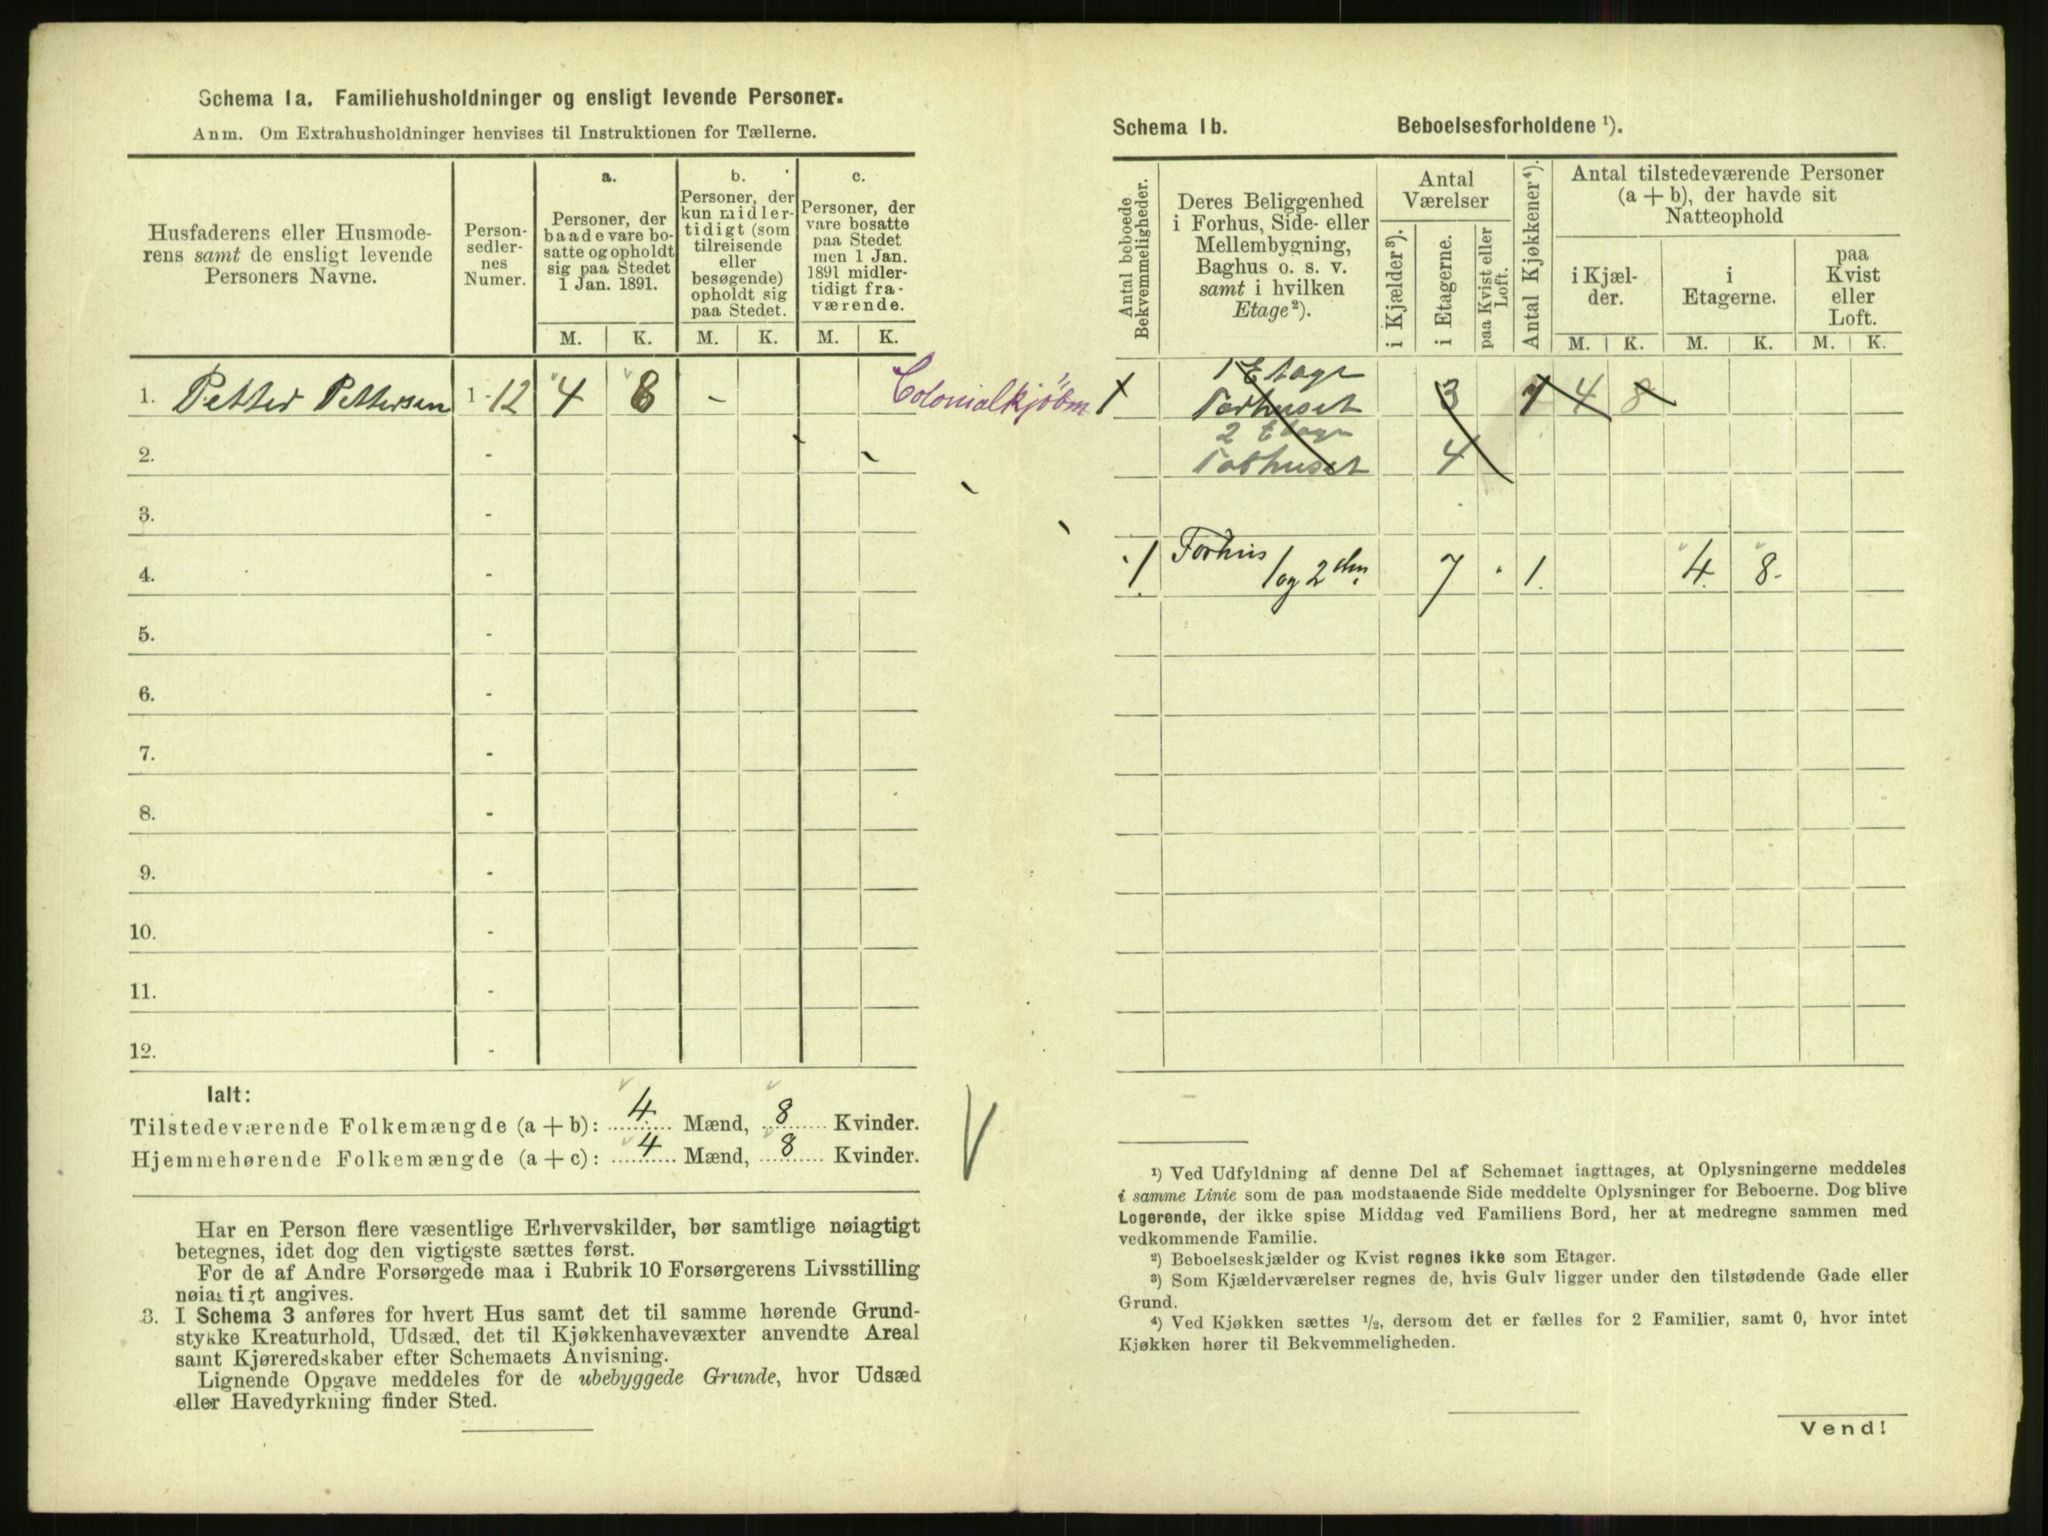 Schema 1a. Familiehusholdninger og ensligt levende Personer.
Anm. Om Extrahusholdninger henvises til Instruktionen for Tællerne.
Husfaderens eller Husmode-
rens samt de ensligt levende
Personers Navne.
Person-
sedler-
nes
Numer.
a.
Personer, der
baade vare bo-
satte og opholdt
sig paa Stedet
1 Jan. 1891.
b.
Personer, der
kun midler-
tidigt (som
tilreisende
eller
besøgende)
opholdt sig
paa Stedet.
c.
Personer, der
vare bosatte
paa Stedet
men 1 Jan.
1891 midler-
tidigt fra-
værende.
M. K. M. K. M. K.
1. Petter Pettersen 1 - 12 4 8 - Colonialkjøbm
2. -
3. -
4. -
5. -
6. -
7. -
8. -
9. -
10. -
11. -
12. -
Ialt:
Tilstedeværende Folkemængde (a + b): 4 Mænd, 8 Kvinder.
Hjemmehørende Folkemængde (a + c): 4 Mænd, 8 Kvinder.
Har en Person flere væsentlige Erhvervskilder, bør samtlige nøiagtigt
betegnes, idet dog den vigtigste sættes først.
For de af Andre Forsørgede maa i Rubrik 10 Forsørgerens Livsstilling
nøiagtigt angives.
3. I Schema 3 anføres for hvert Hus samt det til samme hørende Grund-
stykke Kreaturhold, Udsæd, det til Kjøkkenhavevæxter anvendte Areal
samt Kjøreredskaber efter Schemaets Anvisning.
Lignende Opgave meddeles for de ubebyggede Grunde, hvor Udsæd
eller Havedyrkning finder Sted.
Schema 1b. Beboelsesforholdene ¹).
Antal beboede
Bekvemmeligheder.
Deres Beliggenhed
i Forhus, Side- eller
Mellembygning,
Baghus o. s. v.
samt i hvilken
Etage²).
Antal
Værelser
i Kjælder³).
i Etagerne.
paa Kvist eller
Loft.
Antal Kjøkkener⁴).
Antal tilstedeværende Personer
(a + b), der havde sit
Natteophold
i Kjæl-
der.
i
Etagerne.
paa
Kvist
eller
Loft.
M. K. M. K. M. K.
1 Etage
1 Forhuset 3 1 4 8
2 Etage
Forhuset 4
1 Forhus 1 og 2den 7 1. 4. 8.
¹) Ved Udfyldning af denne Del af Schemaet iagttages, at Oplysningerne meddeles
i samme Linie som de paa modstaaende Side meddelte Oplysninger for Beboerne. Dog blive
Logerende, der ikke spise Middag ved Familiens Bord, her at medregne sammen med
vedkommende Familie.
²) Beboelseskjælder og Kvist regnes ikke som Etager.
³) Som Kjælderværelser regnes de, hvis Gulv ligger under den tilstødende Gade eller
Grund.
⁴) Ved Kjøkken sættes ½, dersom det er fælles for 2 Familier, samt 0, hvor intet
Kjøkken hører til Bekvemmeligheden.
Vend!